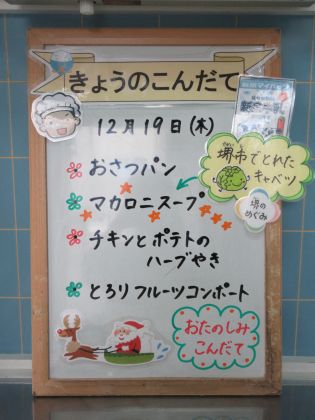 きょうのこんだて
12月19日(木)
おさつパン
マカロニスープ
堺市でとれた
キャベツ
堺の
めぐみ
チキンとポテトの
ハーブやき
とろりフルーツコンポート
おたのしみ
こんだて